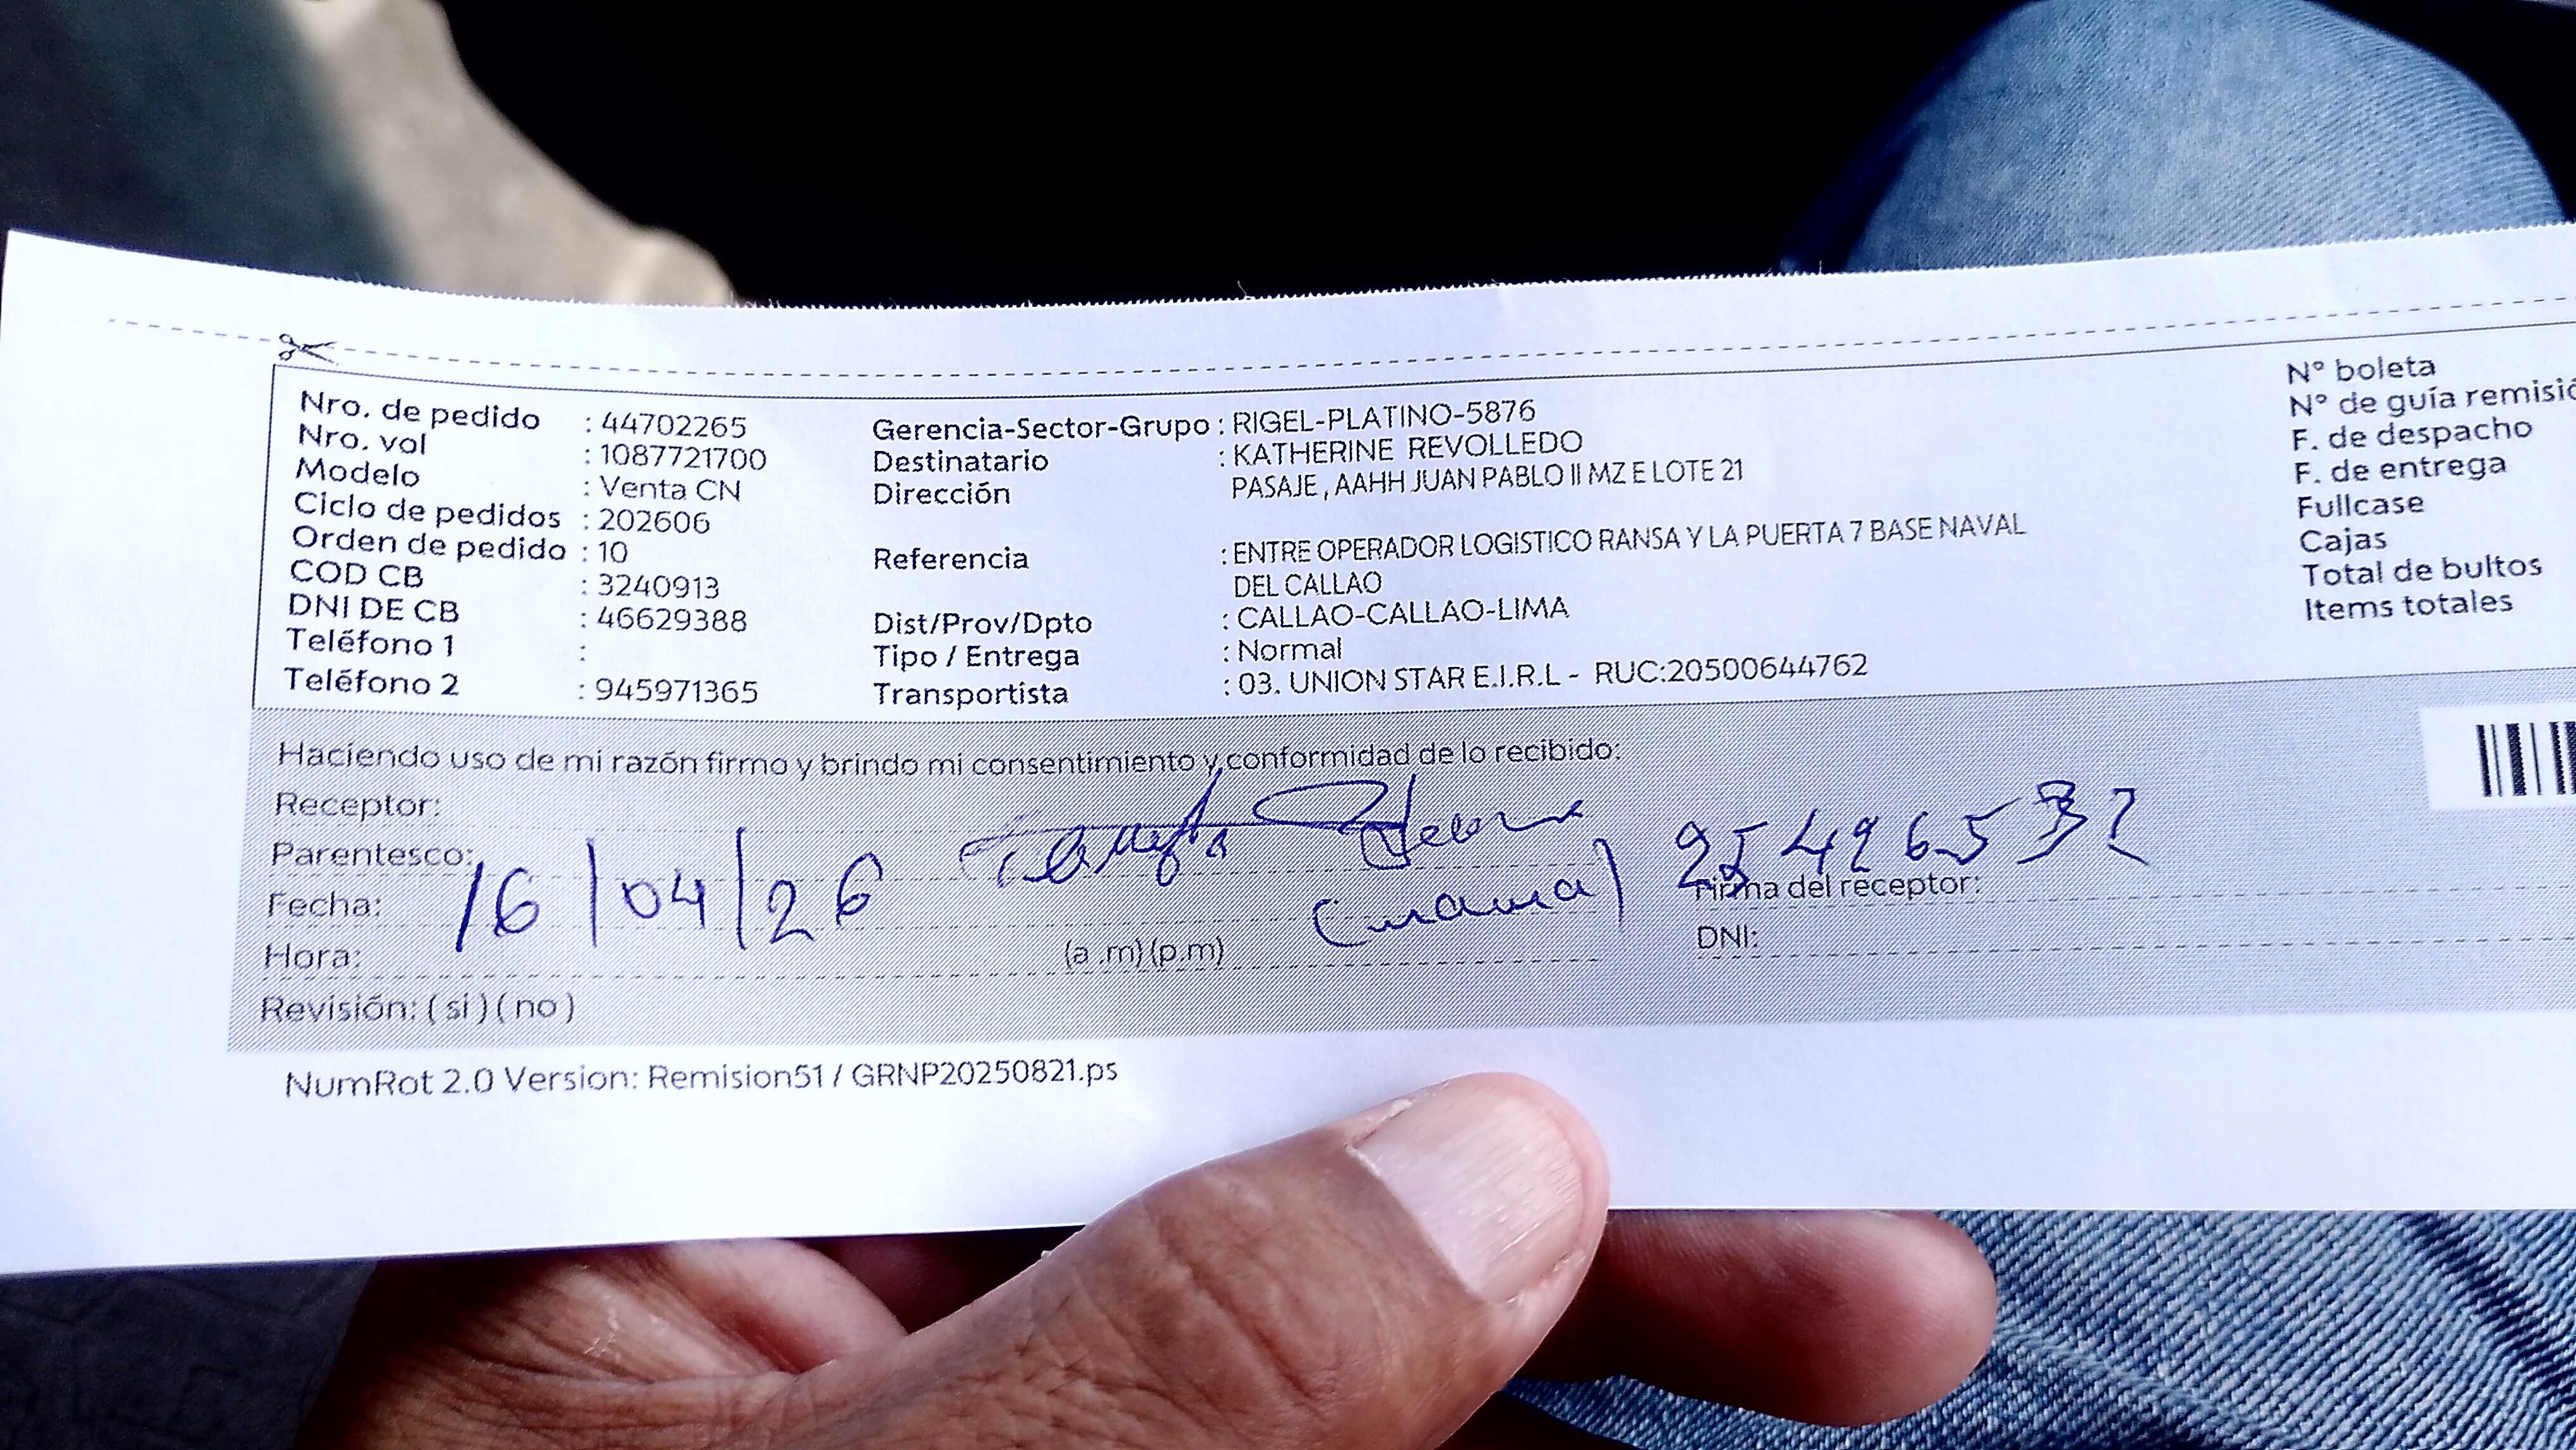 Nro. de pedido : 44702265
Nro. vol : 1087721700
Modelo : Venta CN
Ciclo de pedidos : 202606
Orden de pedido : 10
COD CB : 3240913
DNI DE CB : 46629388
Teléfono 1 :
Teléfono 2 : 945971365
Gerencia-Sector-Grupo : RIGEL-PLATINO-5876
Destinatario : KATHERINE REVOLLEDO
Dirección PASAJE , AAHH JUAN PABLO II MZ E LOTE 21
Referencia : ENTRE OPERADOR LOGISTICO RANSA Y LA PUERTA 7 BASE NAVAL
DEL CALLAO
Dist/Prov/Dpto : CALLAO-CALLAO-LIMA
Tipo / Entrega : Normal
Transportista : 03. UNION STAR E.I.R.L - RUC:20500644762
N° boleta
N° de guía remisió
F. de despacho
F. de entrega
Fullcase
Cajas
Total de bultos
Items totales
Haciendo uso de mi razón firmo y brindo mi consentimiento y conformidad de lo recibido:
Receptor:
Parentesco:
Fecha: 16/04/26
(mama)
Firma del receptor:
Hora: (a .m) (p.m)
DNI:
Revisión: ( si ) ( no )
NumRot 2.0 Version: Remision51 / GRNP20250821.ps